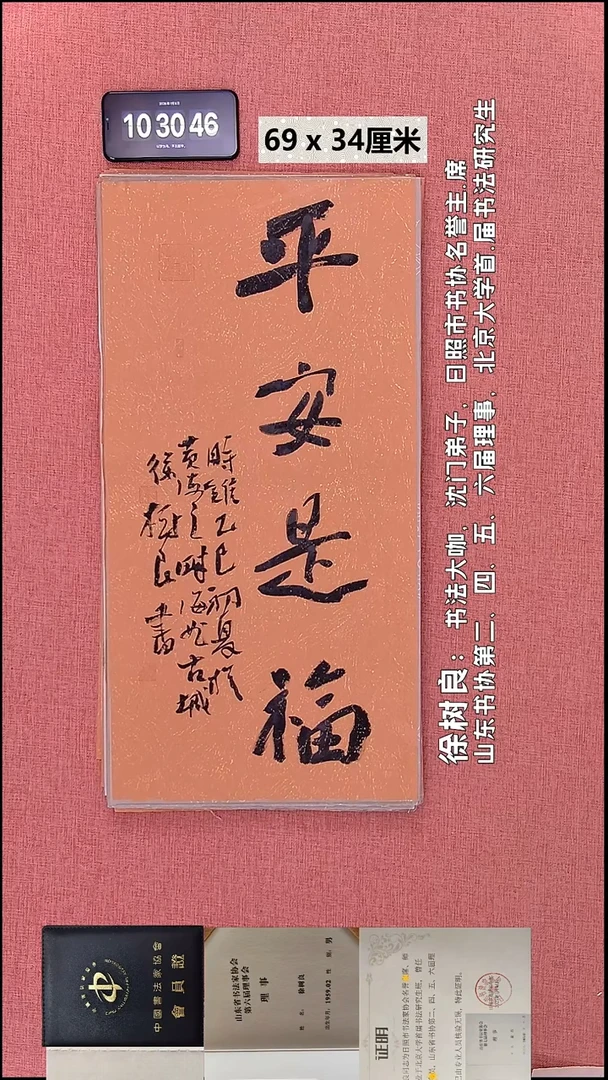 10 30 46
69 x 34厘米
平安是福
時維乙巳初夏於
黄海之畔海曲古城
徐樹良書
徐树良：书法大咖，沈门弟子，日照市书协名誉主.席
山东书协第二、四、五、六届理事，北京大学首.届书法研究生
中國書法家協會
會員證
山东省书法家协会
第六届理事会
理事
姓名：徐树良
出生年月：1959.02 性别：男
证明